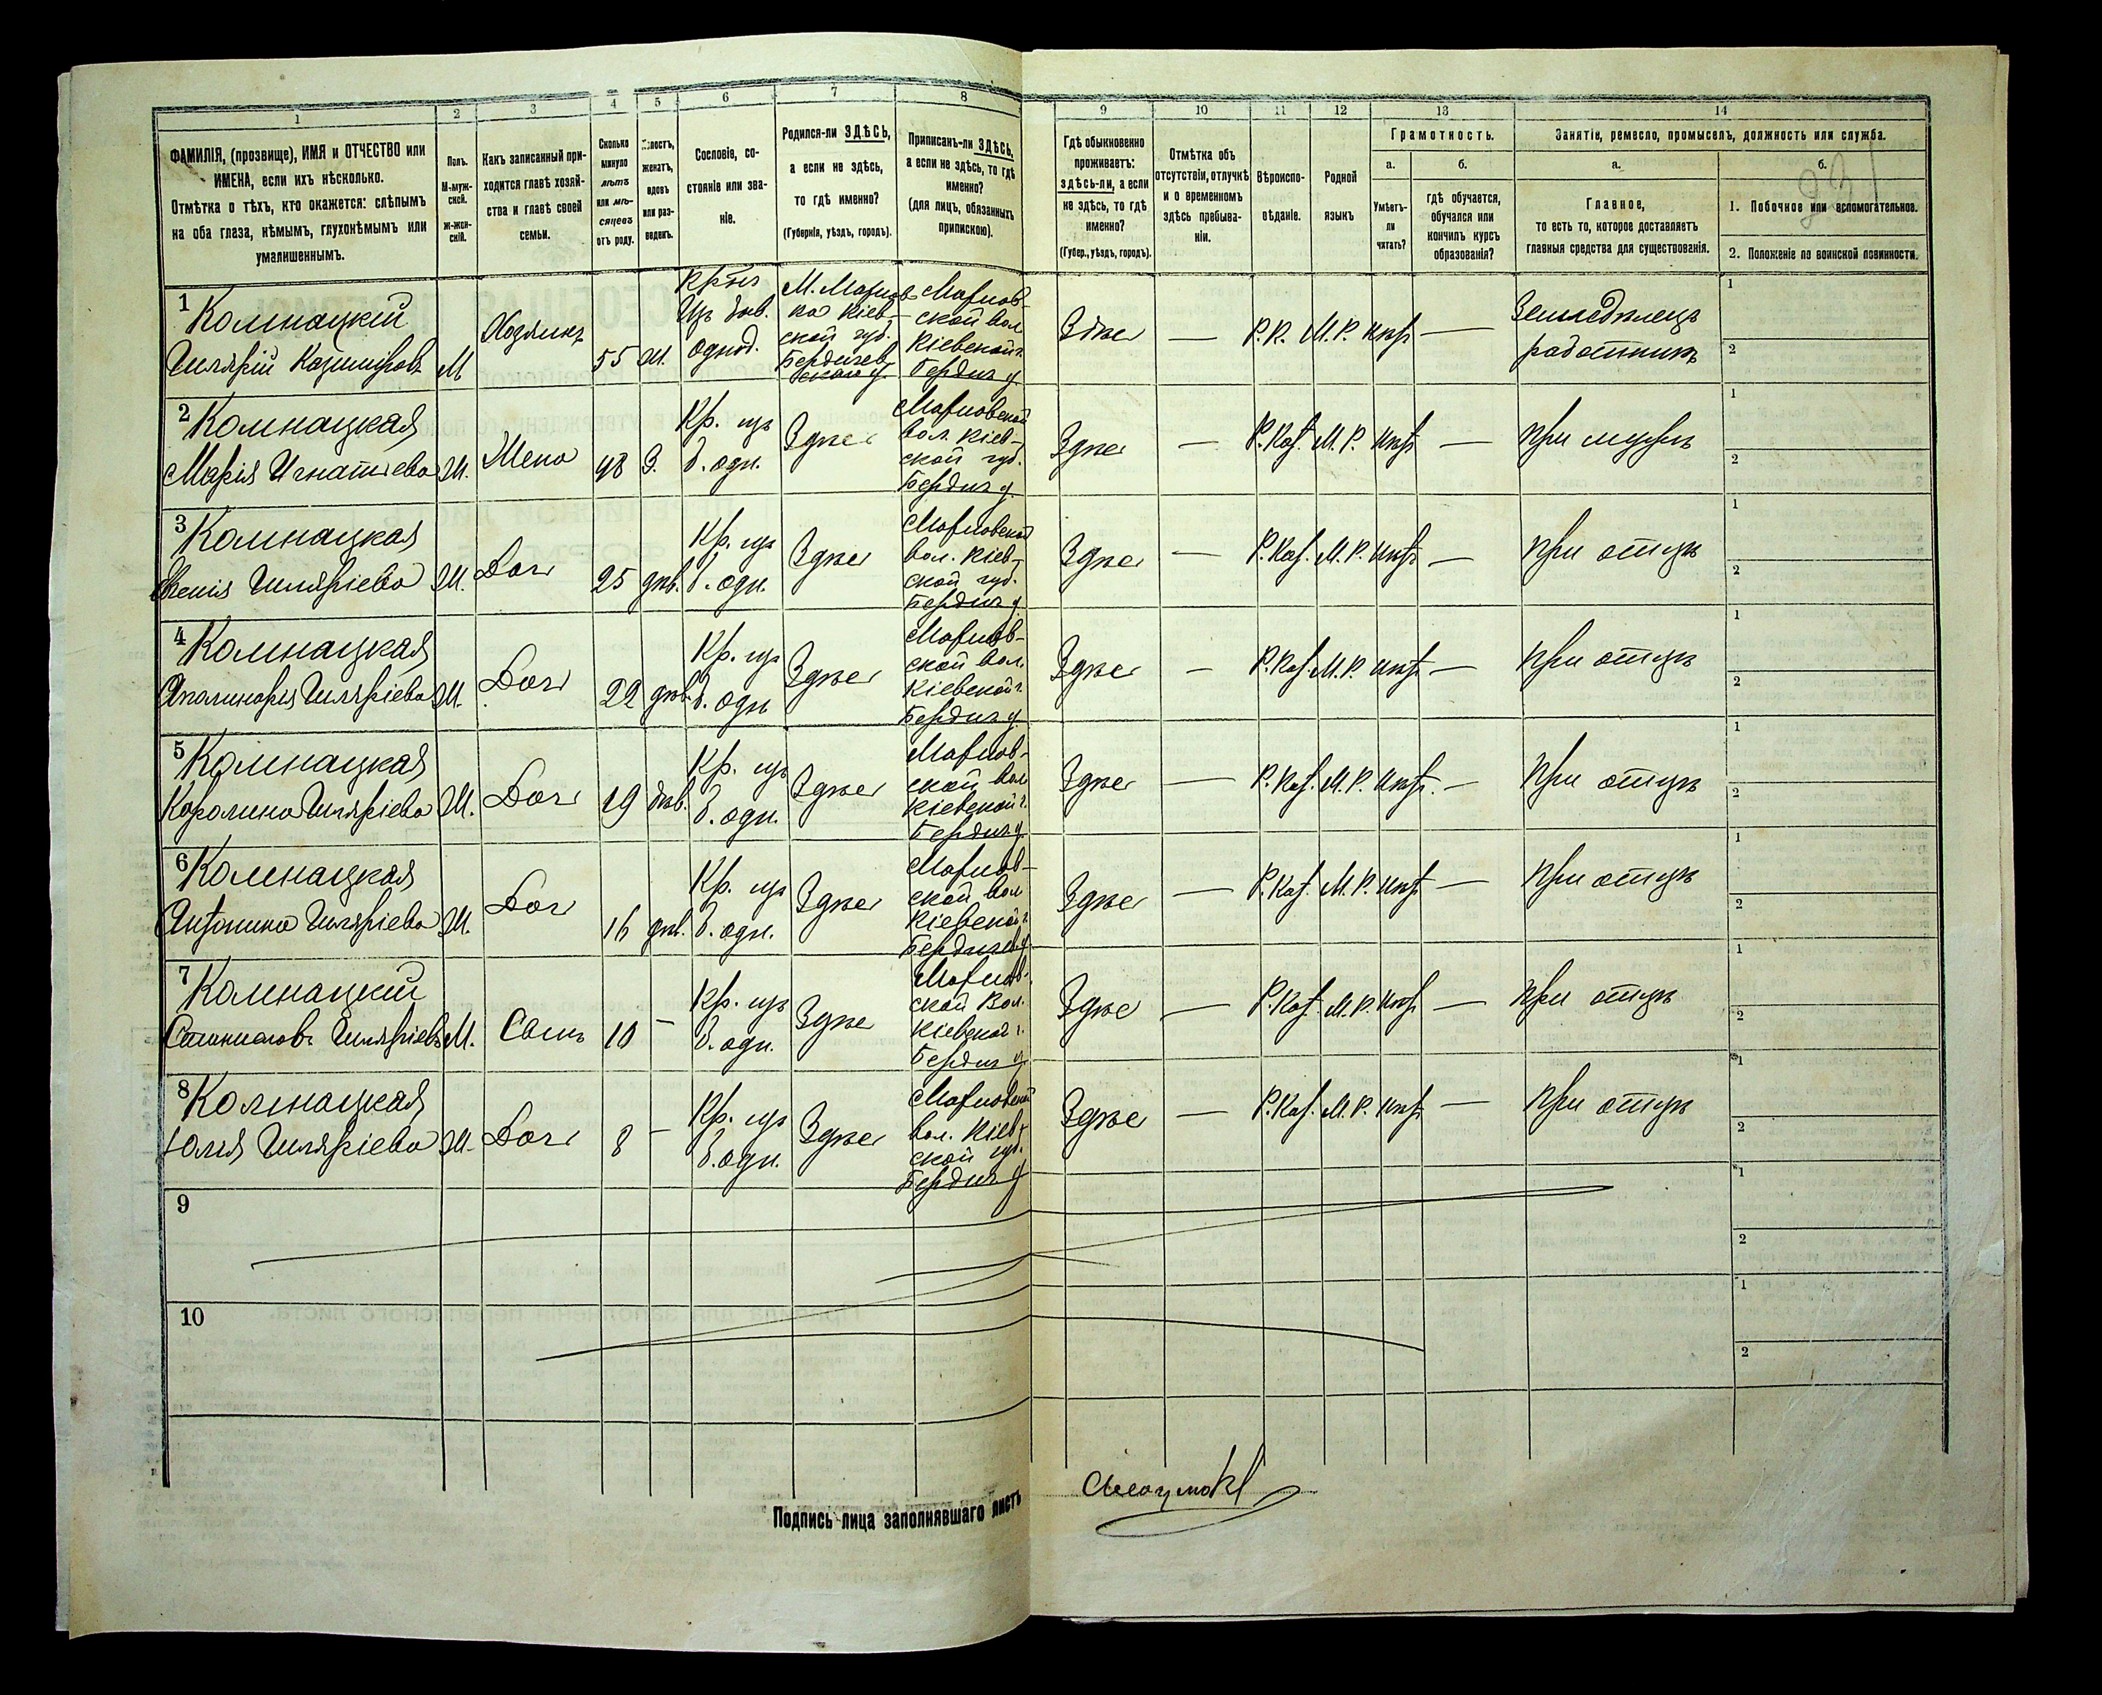 1 2 3 4 5 6 7 8 9 10 11 12 13 14
ФАМИЛІЯ, (прозвище), ИМЯ и ОТЧЕСТВО или ИМЕНА, если ихъ нѣсколько.
Отмѣтка о тѣхъ, кто окажется: слѣпымъ на оба глаза, нѣмымъ, глухонѣмымъ или умалишеннымъ.
Полъ.
М-муж-
ской.
ж-жен-
скій.
Какъ записанный при-
ходится главѣ хозяй-
ства и главѣ своей
семьи.
Сколько
минуло
лѣтъ
или мѣ-
сяцевъ
отъ роду.
Холостъ,
женатъ,
вдовъ
или раз-
веденъ.
Сословіе, со-
стояніе или зва-
ніе.
Родился-ли ЗДѢСЬ,
а если не здѣсь,
то гдѣ именно?
(Губернія, уѣздъ, городъ).
Приписанъ-ли ЗДѢСЬ,
а если не здѣсь, то гдѣ
именно?
(для лицъ, обязанныхъ
припискою).
Гдѣ обыкновенно
проживаетъ:
здѣсь-ли, а если
не здѣсь, то гдѣ
именно?
(Губер., уѣздъ, городъ).
Отмѣтка объ
отсутствіи, отлучкѣ
и о временномъ
здѣсь пребыва-
ніи.
Вѣроиспо-
вѣданіе.
Родной
языкъ
Грамотность.
а.
Умѣетъ-
ли
читать?
б.
гдѣ обучается,
обучался или
кончилъ курсъ
образованія?
Занятіе, ремесло, промыселъ, должность или служба.
а.
Главное,
то есть то, которое доставляетъ
главныя средства для существованія.
б.
1. Побочное или вспомогательное.
2. Положеніе по воинской повинности.
1 Комнацкій
Гилярій Казимировъ М Хозяинъ 55 Ж.
Кр-нъ
Изъ быв.
однод.
Кіев-
ской губ.
Бердичев
скаго у.
ской вол
Кіевской г.
Бердич у.
Здѣсь — Р. К. М. Р. нѣт —
Земледѣлецъ
работникъ
1
2
2 Комнацкая
Марія Игнатіева Ж. Жена 48 З. Кр. изъ
б. одн. Здѣсь
вол. Кіев-
ской губ.
Бердич у.
Здѣсь — Р. Каѳ. М. Р. нѣт — при мужѣ
1
2
3 Комнацкая
Гиляріева Ж. Доч 25 дѣв. Кр. изъ
б. одн. Здѣсь
вол. Кіев-
ской губ.
Бердич у.
Здѣсь — Р. Каѳ. М. Р. нѣт — при отцѣ
1
2
4 Комнацкая
Аполинарія Гиляріева Ж. Доч 22 дѣв. Кр. изъ
б. одн Здѣсь
ской вол.
Кіевской г.
Бердич у.
Здѣсь — Р. Каѳ. М. Р. нѣт — при отцѣ
1
2
5 Комнацкая
Каролина Гиляріева Ж. Доч 19 дѣв. Кр. изъ
б. одн. Здѣсь
ской вол
Кіевской г.
Бердич у.
Здѣсь — Р. Каѳ. М. Р. нѣт. — при отцѣ
1
2
6 Комнацкая
Антонина Гиляріева Ж. Доч 16 дѣв. Кр. изъ
б. одн. Здѣсь
ской вол
Кіевской г.
Бердич у.
Здѣсь — Р. Каѳ. М. Р. нѣт — при отцѣ
1
2
7 Комнацкій
Станиславъ Гиляріевъ М. Сынъ 10 — Кр. изъ
б. одн. Здѣсь
ской Вол.
Кіевской г.
Бердич у.
Здѣсь — Р. Каѳ. М. Р. нѣт — при отцѣ
1
2
8 Комнацкая
Юлія Гиляріева Ж. Доч 8 — Кр. изъ
б. одн. Здѣсь
вол. Кіев-
ской губ.
Бердич у
Здѣсь — Р. Каѳ. М. Р. нѣт — при отцѣ
1
2
9
1
2
10
1
2
Подпись лица заполнявшаго листъ